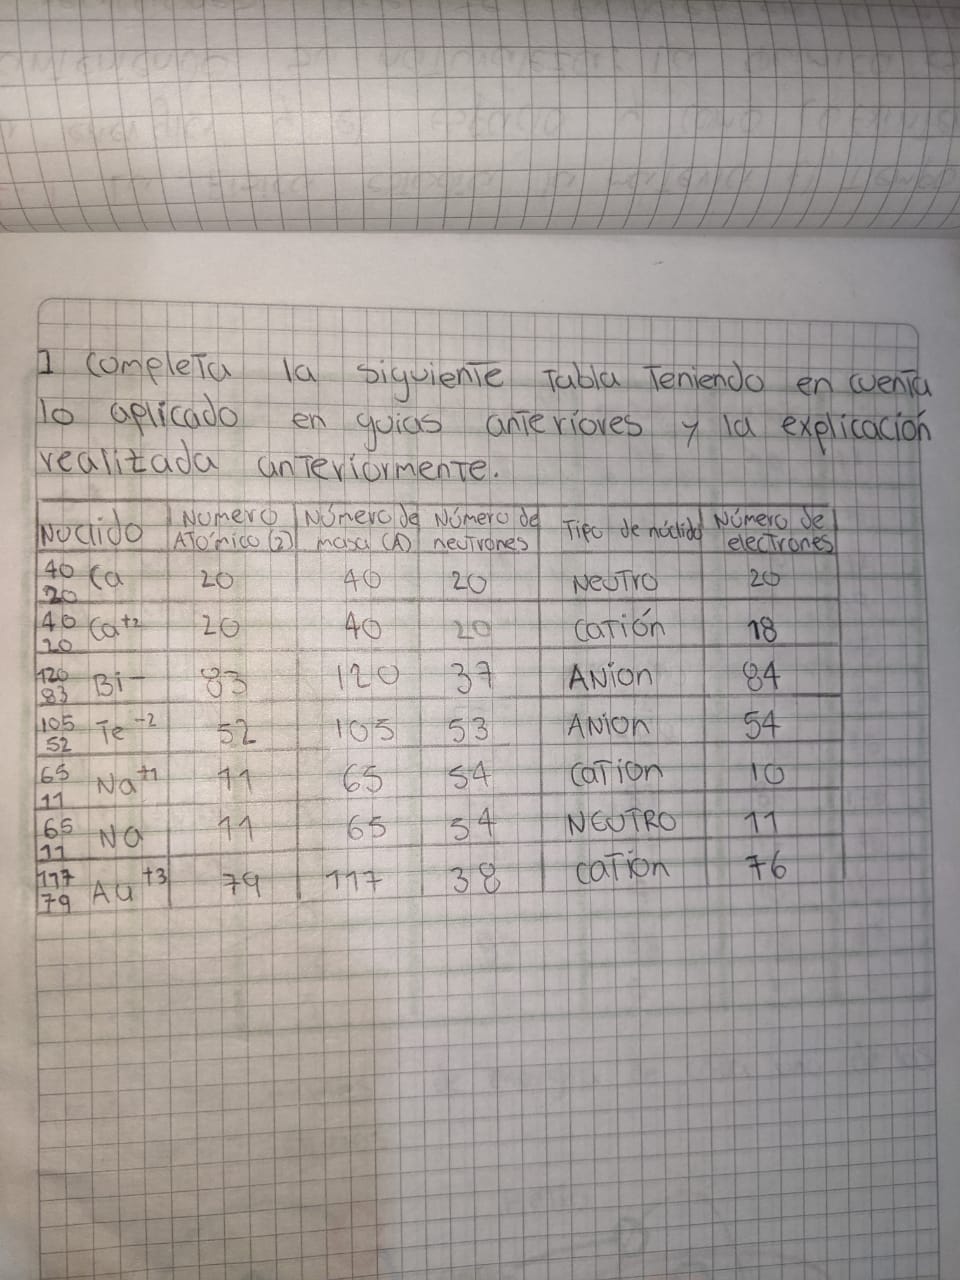 1 Completa la siguiente Tabla Teniendo en cuenta
lo aplicado en guias anteriores y la explicación
realizada anteriormente.
Nuclido Número Atómico (Z) Número de masa (A) Número de neutrones Tipo de núclido Número de electrones
40 20 Ca 20 40 20 Neutro 20
40 20 Ca+2 20 40 20 Catión 18
120 83 Bi- 83 120 37 Anion 84
105 52 Te-2 52 105 53 Anion 54
65 11 Na+1 11 65 54 Cation 10
65 11 Na 11 65 54 NEUTRO 11
117 79 Au+3 79 117 38 Cation 76